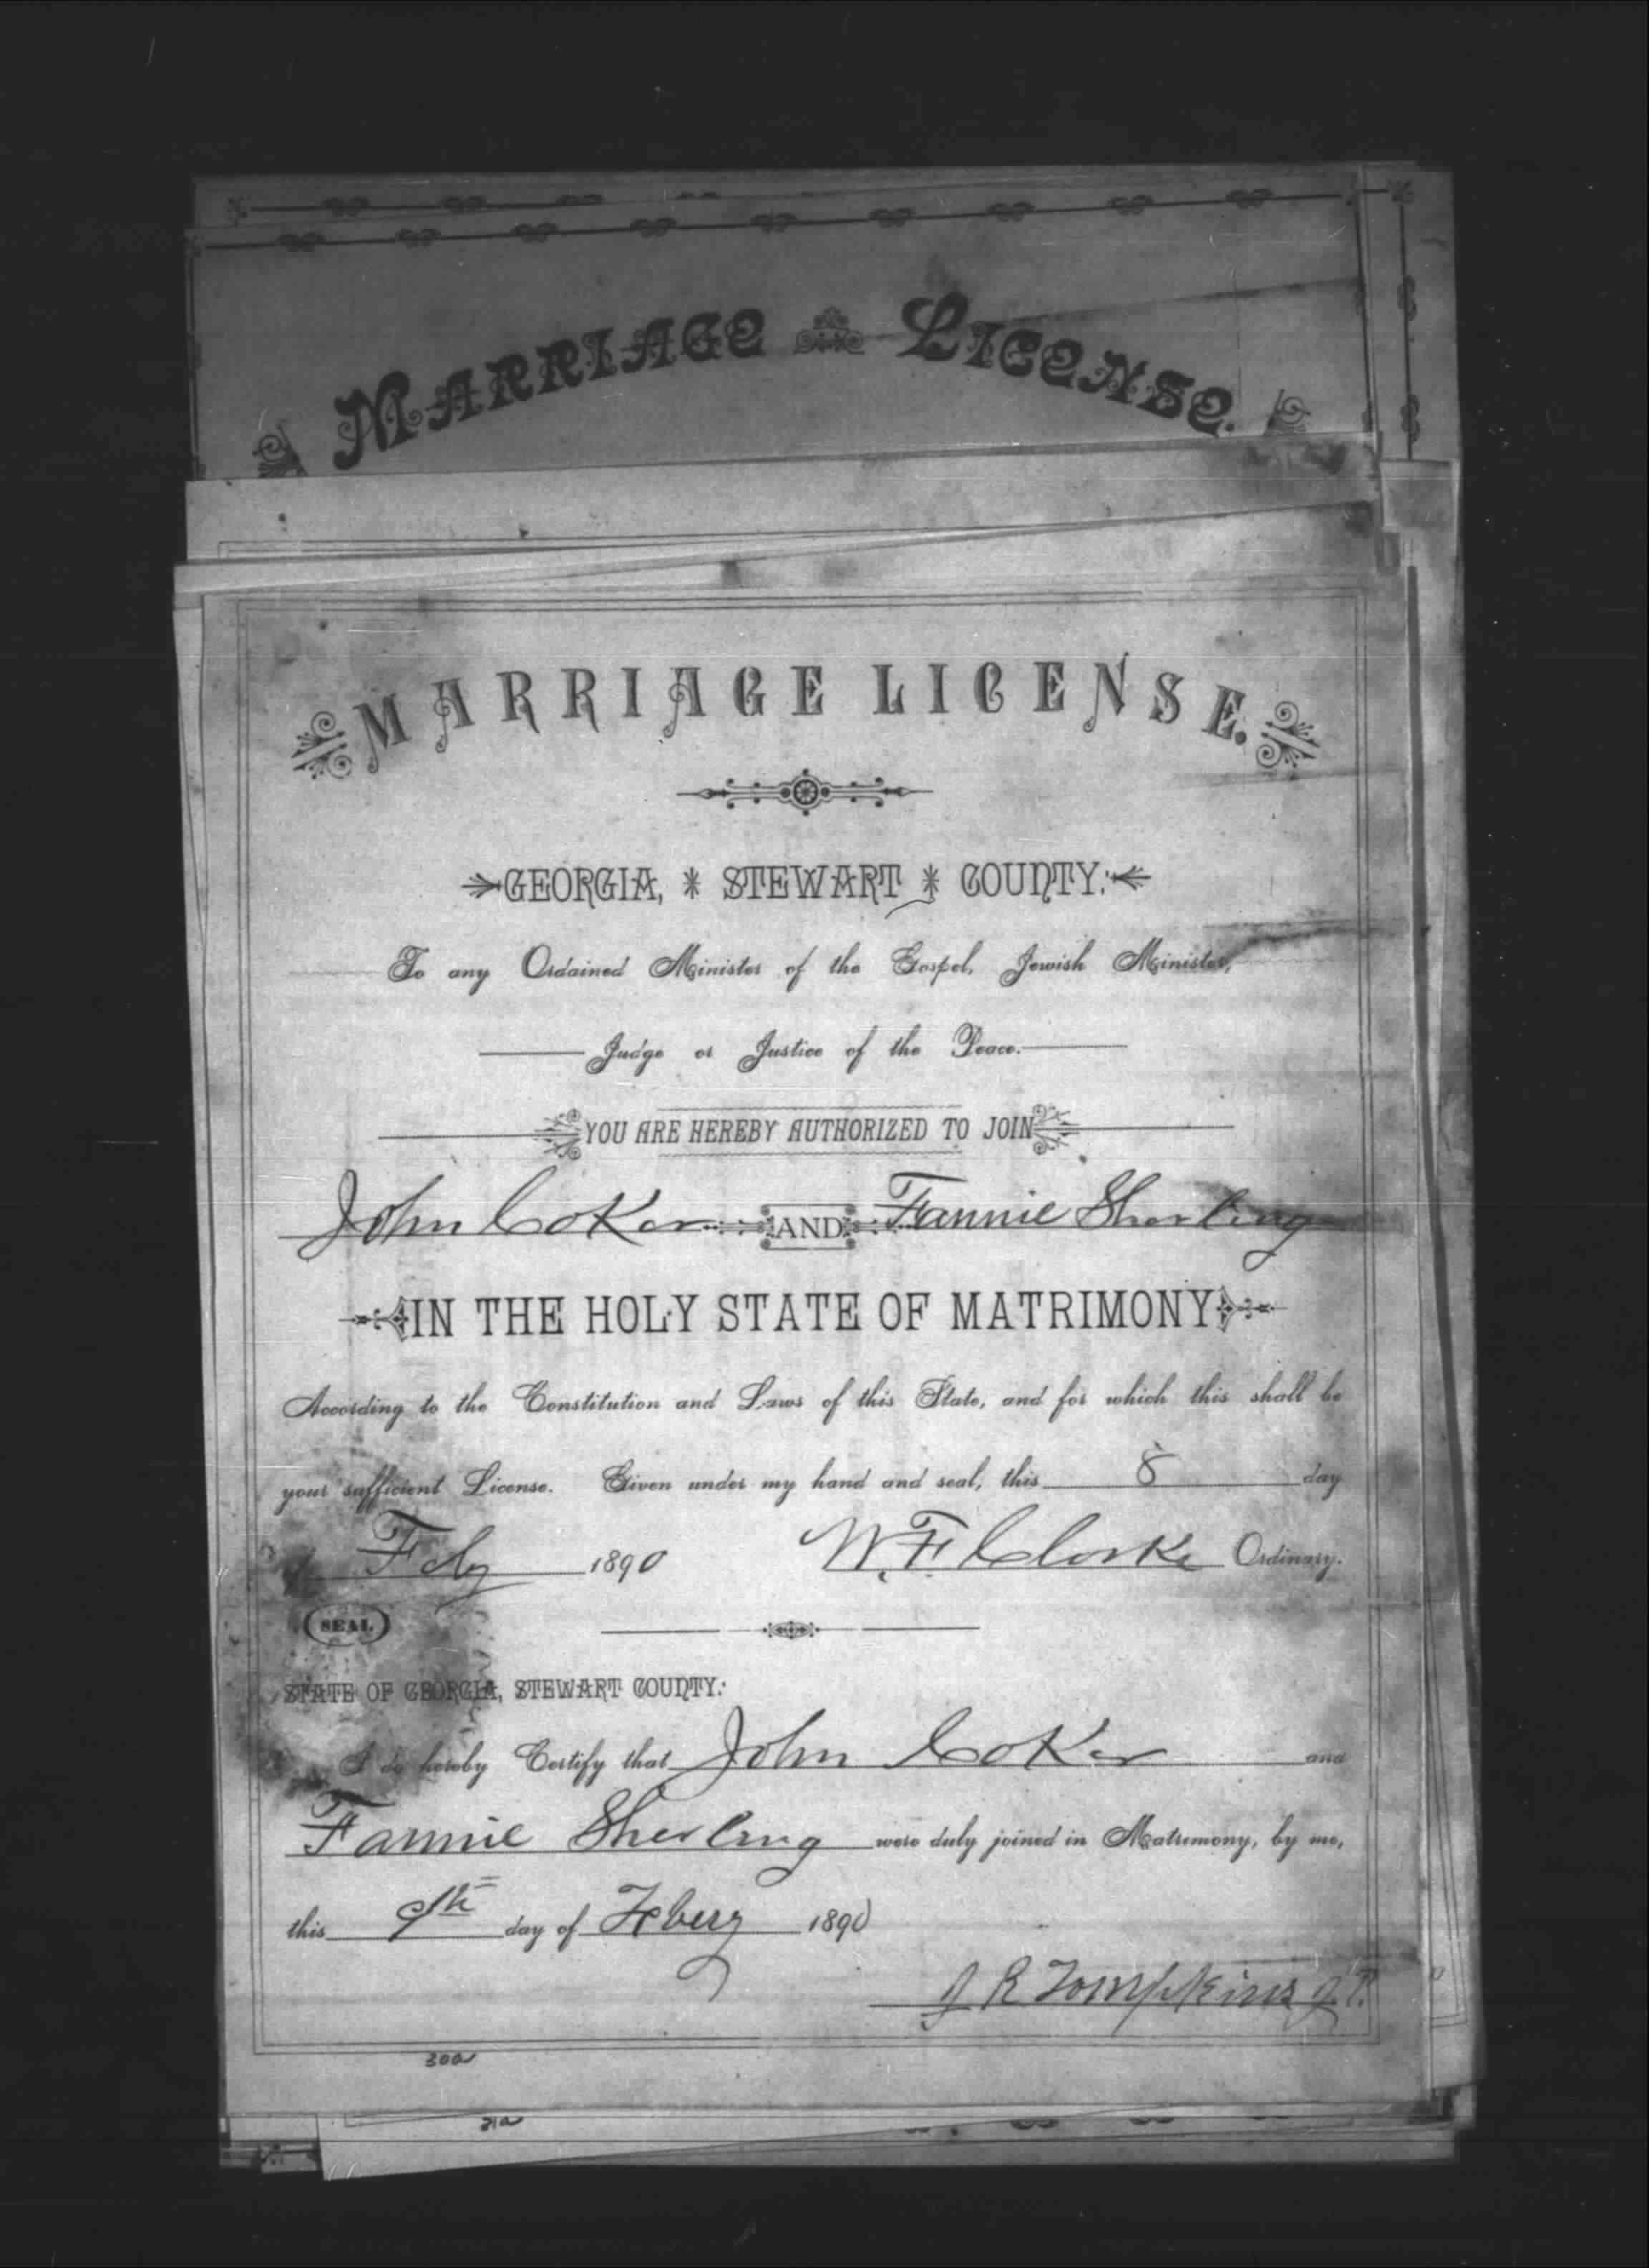 MARRIAGE LICENSE.
MARRIAGE LICENSE.
GEORGIA, * STEWART * COUNTY:
To any Ordained Minister of the Gospel, Jewish Minister,
Judge or Justice of the Peace.
YOU ARE HEREBY AUTHORIZED TO JOIN
John Coker AND Fannie Sherling
IN THE HOLY STATE OF MATRIMONY
According to the Constitution and Laws of this State, and for which this shall be
your sufficient License. Given under my hand and seal, this 8 day
of Feby 1890 W. F. Clarke Ordinary.
SEAL
STATE OF GEORGIA, STEWART COUNTY:
I do hereby Certify that John Coker and
Fannie Sherling were duly joined in Matrimony, by me,
this 9th day of Febery 1890
J R Tompkins J.P.